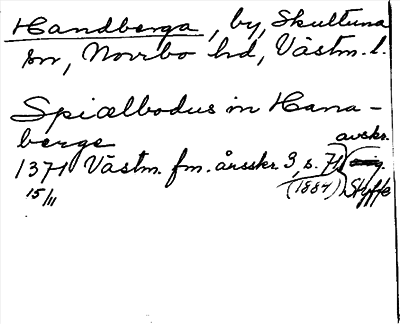 Handberga, by, Skultuna
sn, Norrbo hd, Västm. l.
Spiælbodus in Hana-
berge
avskr.
1371 Västm. fm. årsskr. 3, s. 71
15/11 (1884) Styffe